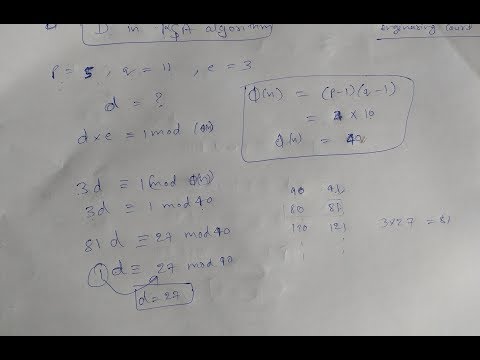 D in RSA algorithm
Engineering Course
p = 5, q = 11, e = 3
d = ?
d×e ≡ 1 mod φ(n)
φ(n) = (p-1)(q-1)
= 4 × 10
φ(n) = 40
3d ≡ 1 mod φ(n)
3d ≡ 1 mod 40
81 d ≡ 27 mod 40
1 d ≡ 27 mod 40
d = 27
40 41
80 81
120 121
: :
3×27 = 81